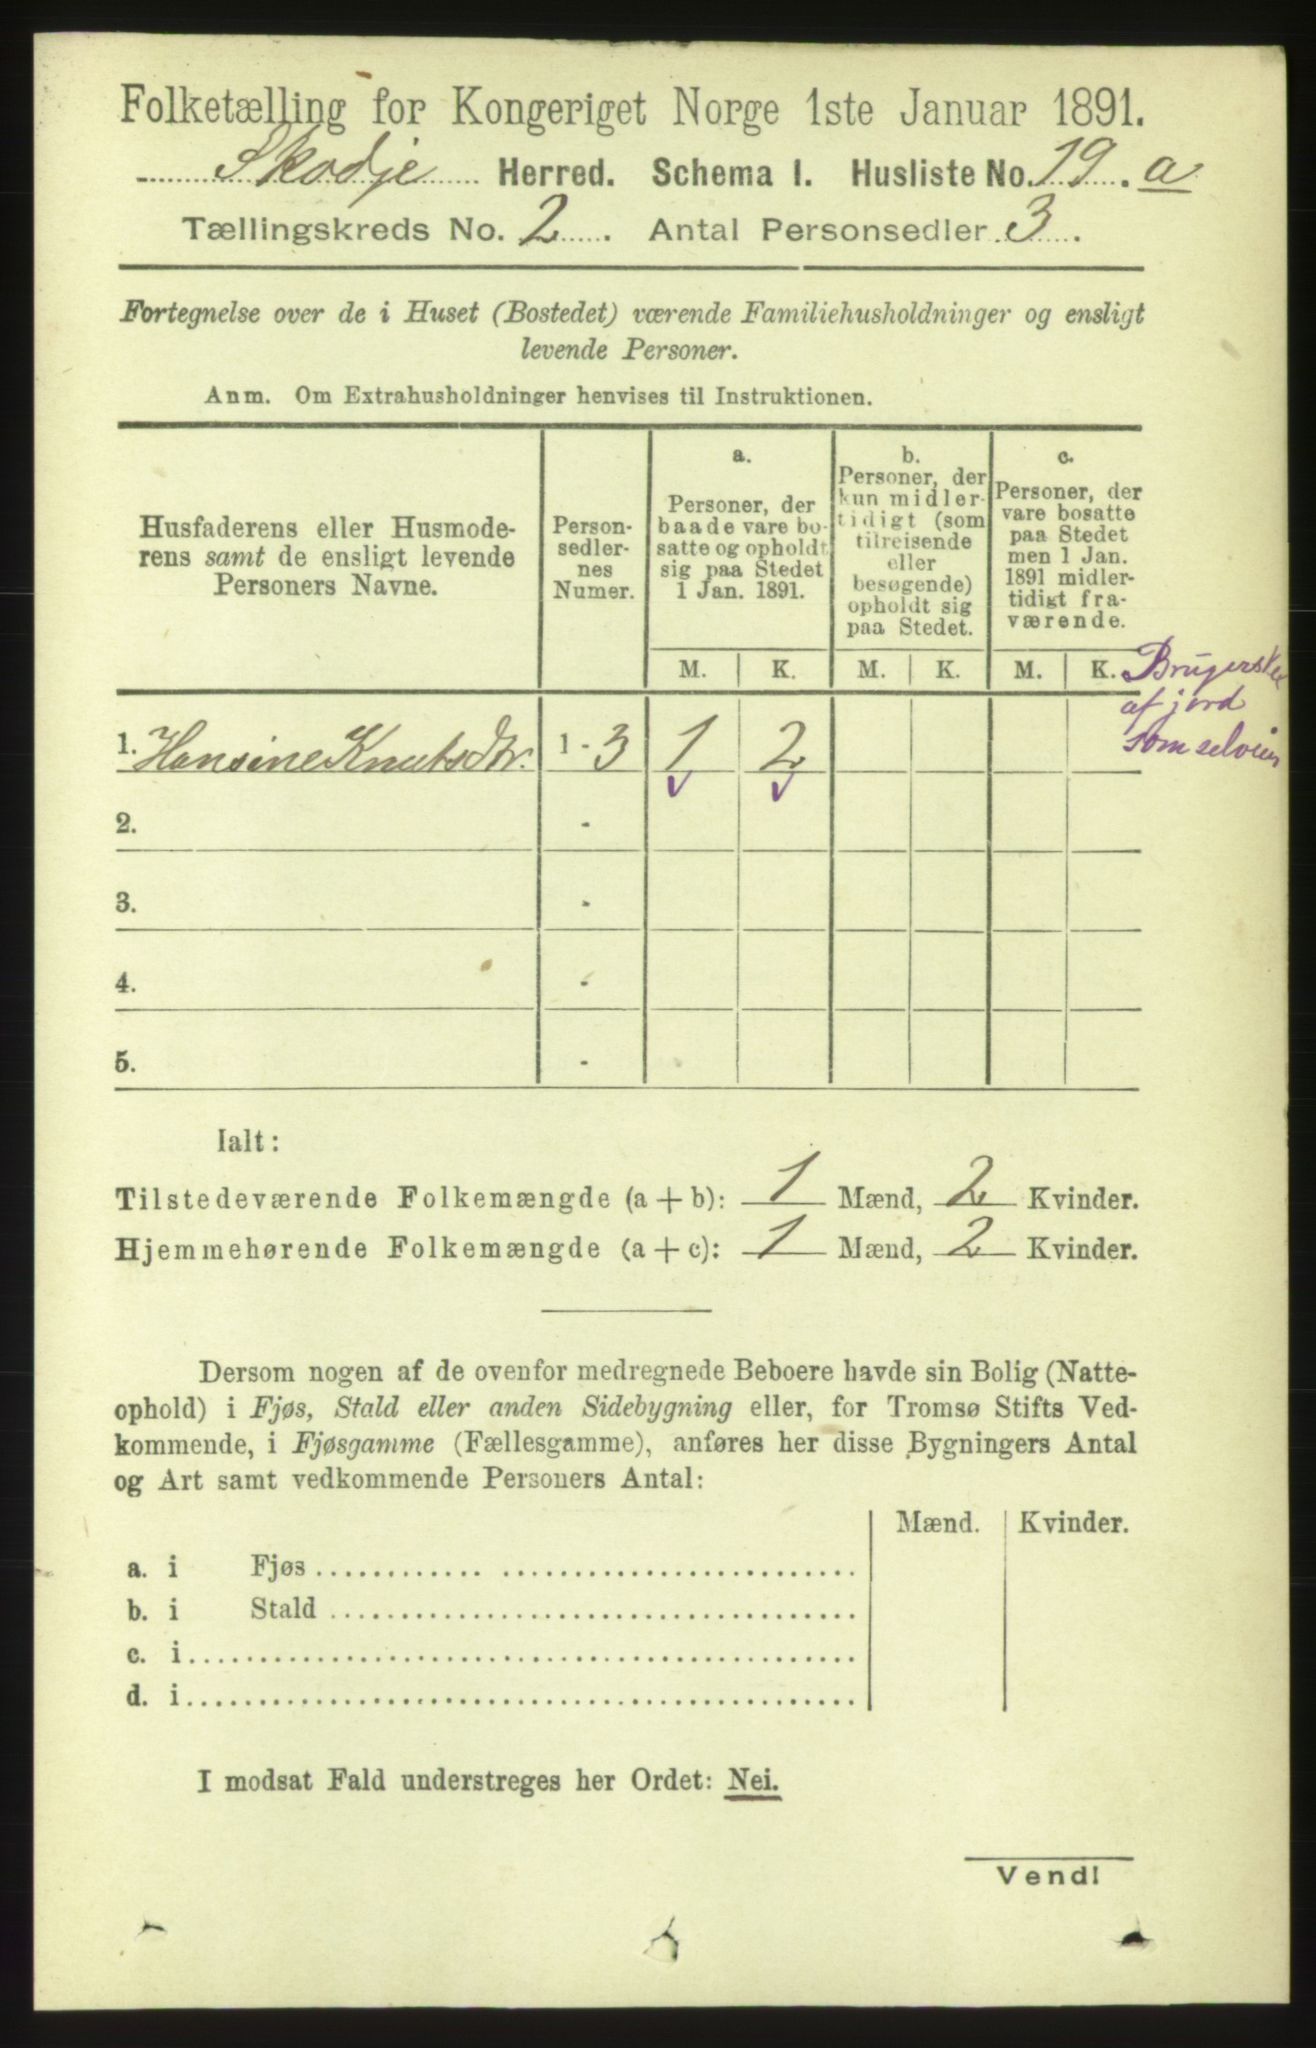 Folketælling for Kongeriget Norge 1ste Januar 1891.
Skodje Herred. Schema 1. Husliste No. 19. a
Tællingskreds No. 2. Antal Personsedler 3.
Fortegnelse over de i Huset (Bostedet) værende Familiehusholdninger og ensligt
levende Personer.
Anm. Om Extrahusholdninger henvises til Instruktionen.
Husfaderens eller Husmode-
rens samt de ensligt levende
Personers Navne.
Person-
sedler-
nes
Numer.
a.
Personer, der
baade vare bo-
satte og opholdt
sig paa Stedet
1 Jan. 1891.
b.
Personer, der
kun midler-
tidigt (som
tilreisende
eller
besøgende)
opholdt sig
paa Stedet.
c.
Personer, der
vare bosatte
paa Stedet
men 1 Jan.
1891 midler-
tidigt fra-
værende.
M. K. M. K. M. K.
Brugerske
af jord
som selveier
1. Hansine Knutsdtr. 1 - 3 1 2
2. -
3. -
4. -
5. -
Ialt:
Tilstedeværende Folkemængde (a + b): 1 Mænd, 2 Kvinder.
Hjemmehørende Folkemængde (a + c): 1 Mænd, 2 Kvinder.
Dersom nogen af de ovenfor medregnede Beboere havde sin Bolig (Natte-
ophold) i Fjøs, Stald eller anden Sidebygning eller, for Tromsø Stifts Ved-
kommende, i Fjøsgamme (Fællesgamme), anføres her disse Bygningers Antal
og Art samt vedkommende Personers Antal:
Mænd. Kvinder.
a. i Fjøs
b. i Stald
c. i
d. i
I modsat Fald understreges her Ordet: Nei.
Vend!